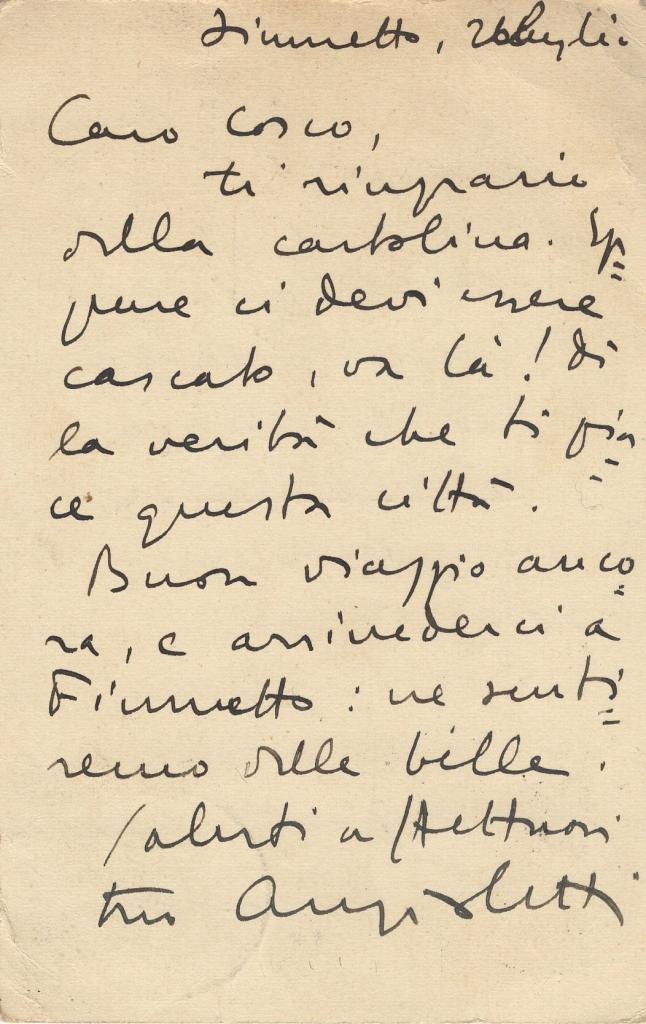 Fiumetto, 26 luglio
Caro Cosco,
ti ringrazio
della cartolina. Ep=
pure ci devi essere
cascato, va là! Di
la verità che ti pia=
ce questa città.
Buon viaggio anco=
ra, e arrivederci a
Fiumetto: ne senti=
remo delle belle.
Saluti a
tuo Angioletti